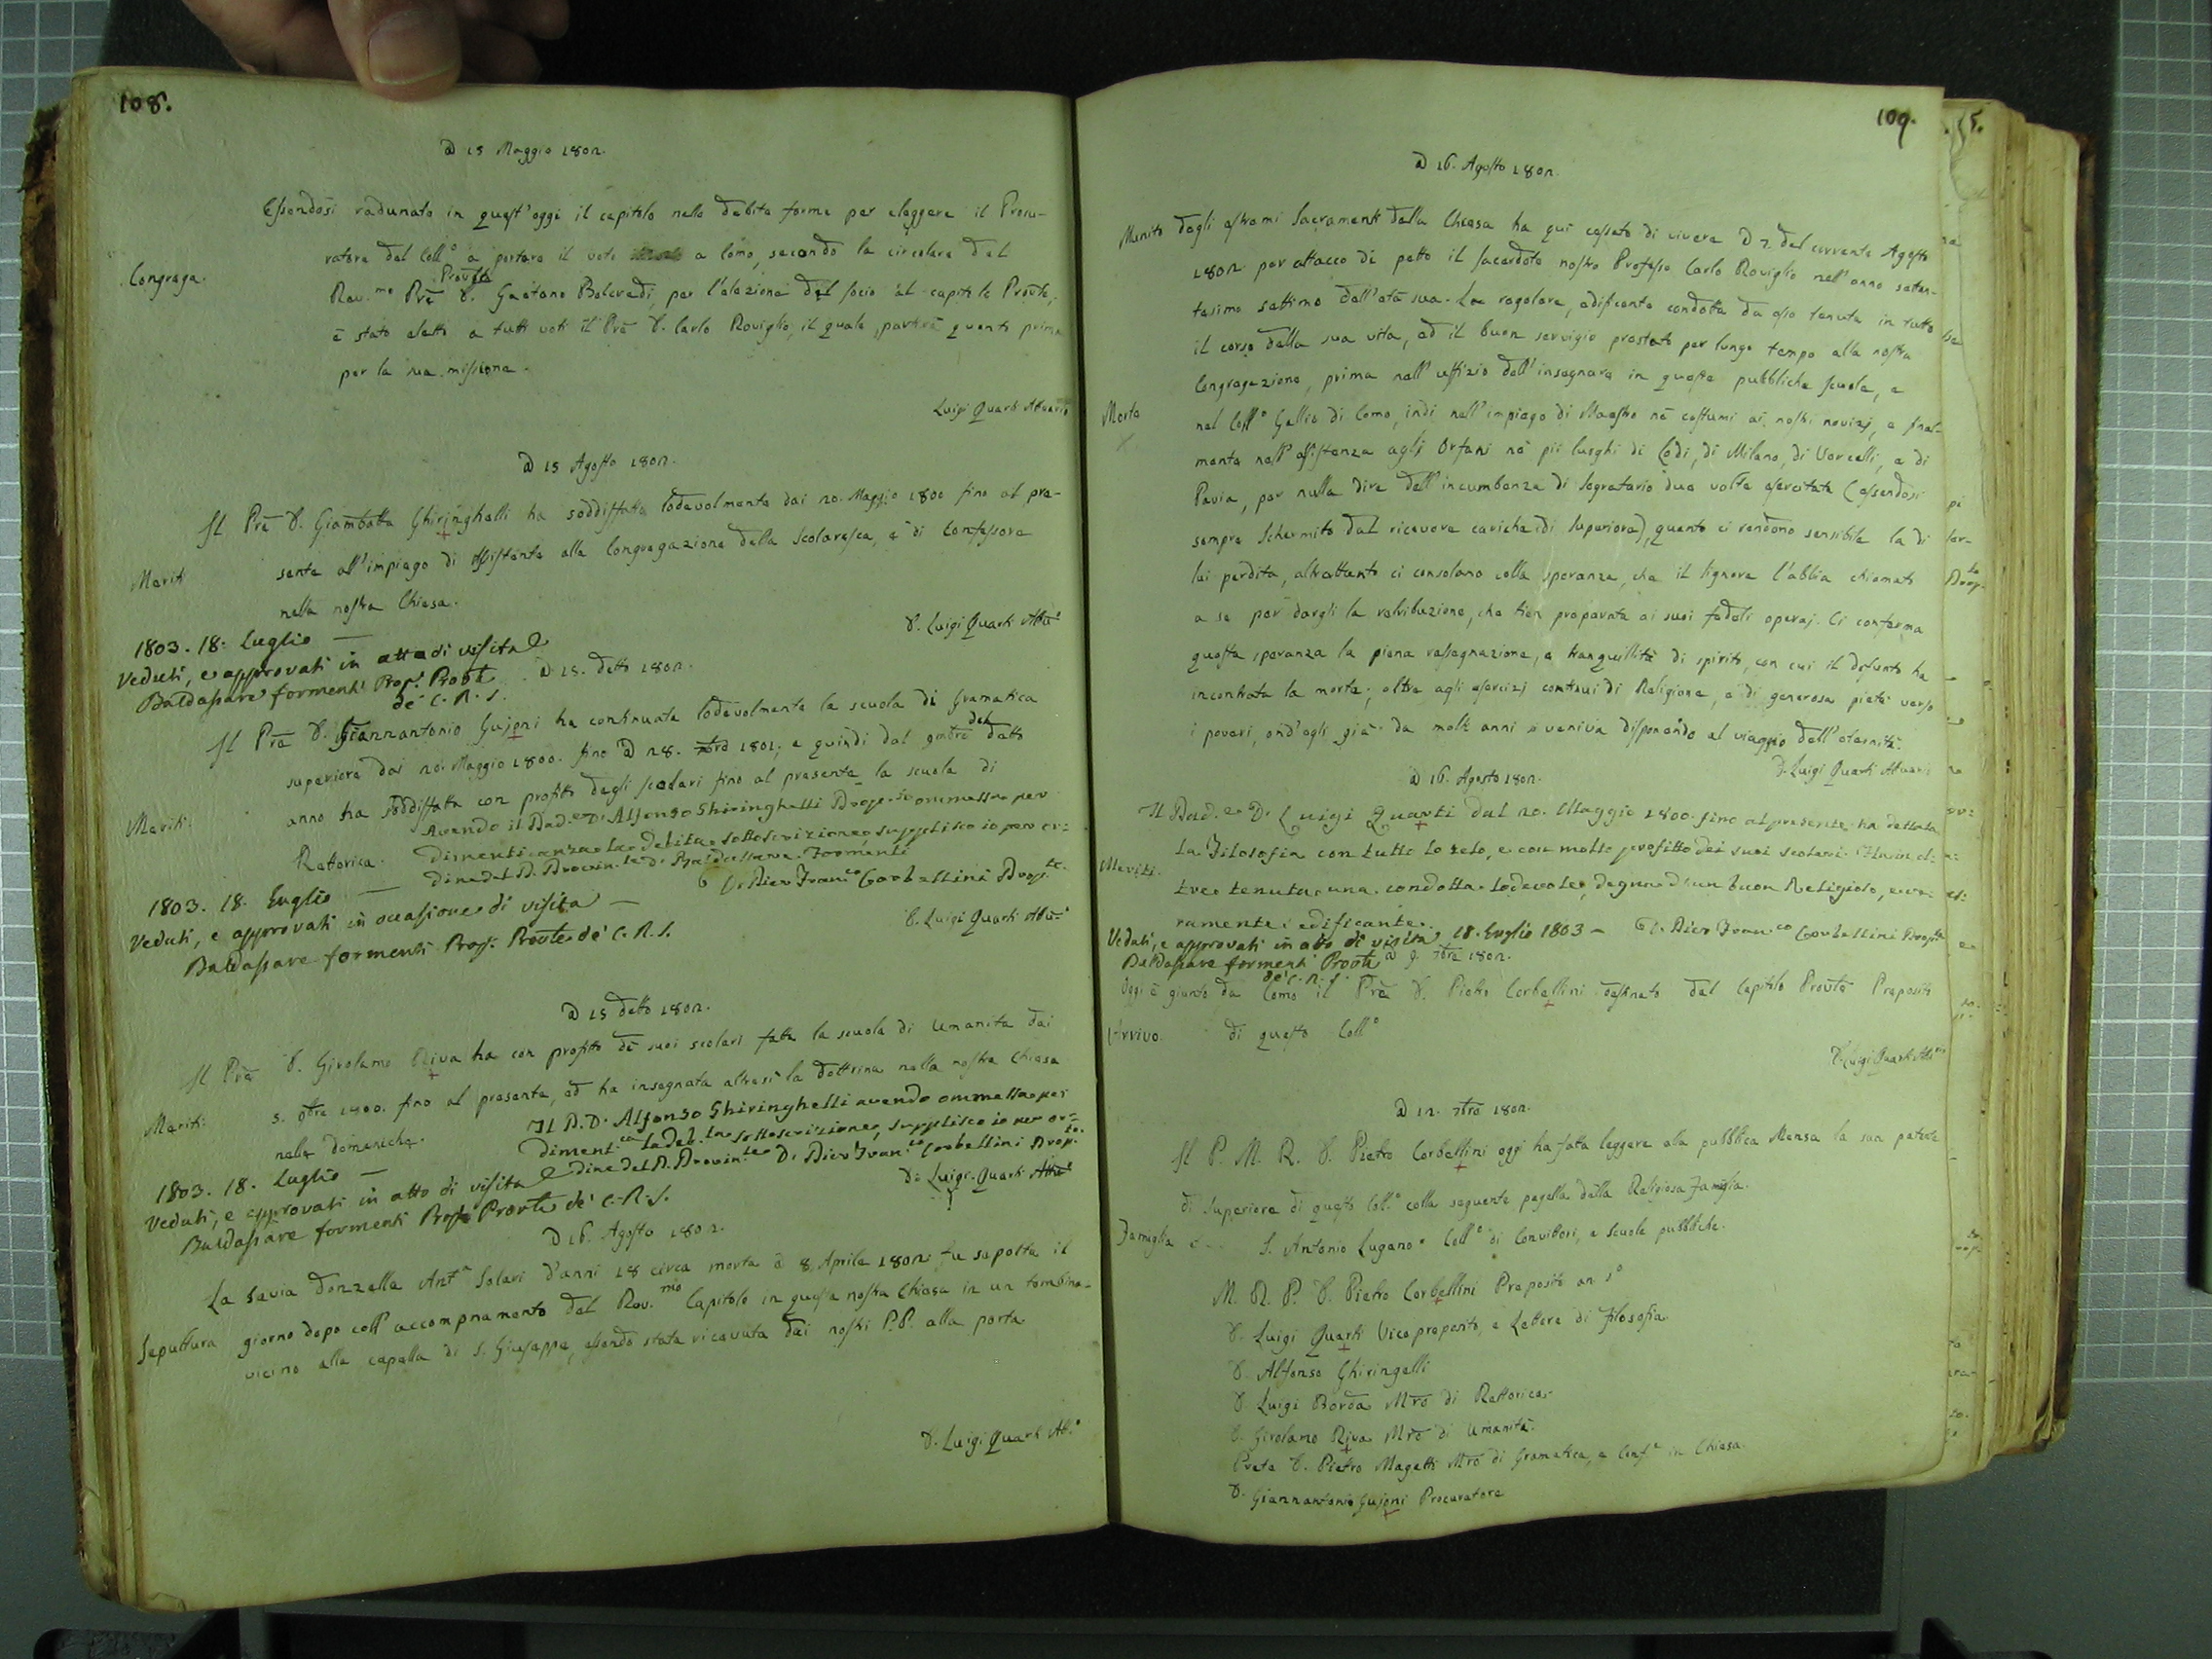 108.
a 15 Maggio 1802.
Essendosi radunato in quest'oggi il capitolo nelle debite forme per eleggere il Procu-
ratore del Coll.° a portare il voto a Como, secondo la circolare del
Congrega.
Rev.mo Prē Provle D. Gaetano Bolcvedi, per l'elezione del socio al capitolo Provle,
è stato eletto a tutti voti il Prē D. Carlo Roviglio, il quale partirà quanto prima
per la sua missione.
Luigi Quarti Attuario
a 15 Agosto 1802.
Il Prē D. Giambatta Ghiringhelli ha soddisfatto lodevolmente dai 20. Maggio 1800 fino al pre-
Meriti
sente all'impiego di Assistente alla Congregazione della Scolaresca, e di Confessore
nella nostra Chiesa.
D. Luigi Quarti Attu°
1803. 18. Luglio —
Veduti, e approvati in atto di visita
Baldassare formenti Prop. Provle
de' C. R. S.
a 15. detto 1802.
Il Prē D. Giannantonio Gujoni ha continuato lodevolmente la scuola di Gramatica
superiore dai 20. Maggio 1800. fino a 28. 1801; e quindi dal del detto
Meriti.
anno ha soddisfatto con profitto degli scolari fino al presente la scuola di
Rettorica.
Avendo il Pad.e D. Alfonso Ghiringhelli Prop.to ommessa per
dimenticanza la debita sottoscrizione, supplisco io per or-
dine del P. Provin.le D. Baldassare Formenti
D. Pier Fran.co Corbellini Prop.to
1803. 18. Luglio —
Veduti, e approvati in occasione di visita —
D. Luigi Quarti Attu°
Baldassare formenti Prop. Provle de' C. R. S.
a 15 detto 1802.
Il Prē D. Girolamo Riva ha con profitto de' suoi scolari fatta la scuola di Umanità dai
5. 9bre 1800. fino al presente, ed ha insegnata altresì la dottrina nella nostra Chiesa
Meriti.
nelle domeniche.
Il P. D. Alfonso Ghiringhelli avendo ommessa per
diment.za la deb.ta sottoscrizione, supplisco io per or-
dine del P. Provin.le D. Pier Fran.co Corbellini Prop.to
1803. 18. Luglio —
Veduti, e approvati in atto di visita
D. Luigi Quarti Attu°
Baldassare formenti Prop. Provle de' C. R. S.
a 16. Agosto 1802.
La Savia donzella Ant.a Solari d'anni 18 circa morta a 8. Aprile 1802 fu sepolta il
Sepultura
giorno dopo coll'accompnamento del Rev.mo Capitolo in questa nostra Chiesa in un tombino
vicino alla capella di S. Giuseppe, essendo stata ricevuta dai nostri P.P. alla porta.
D. Luigi Quarti Att.°
109.
a 16. Agosto 1802.
Munito degli estremi Sacramenti della Chiesa ha qui cessato di vivere a 2. del corrente Agosto
1802 per attacco di petto il sacerdote nostro Professo Carlo Roviglio nell'anno settan-
tesimo settimo dell'età sua. La regolare, edificante condotta da esso tenuta in tutto
il corso della sua vita, ed il buon servigio prestato per lungo tempo alla nostra
Congregazione, prima nell'uffizio dell'insegnare in queste pubbliche scuole, e
Morte
nel Coll° Gallio di Como, indi nell'impiego di Maestro ne' costumi ai nostri novizj, e final-
mente nell'assistenza agli Orfani ne' pii luoghi di Lodi, di Milano, di Vercelli, e di
Pavia, per nulla dire dell'incumbenza di Segretario due volte esercitata (essendosi
sempre schermito dal ricevere cariche di Superiore), quanto ci rendono sensibile la di
lui perdita, altrettanto ci consolano colla speranza, che il Signore l'abbia chiamato
a se per dargli la retribuzione, che tien preparata ai suoi fedeli operaj. Ci conferma
questa speranza la piena rassegnazione, e tranquillità di spirito, con cui il defunto ha
incontrata la morte; oltre agli esercizj continui di Religione, e di generosa pietà verso
i poveri, ond'egli già da molti anni si veniva disponendo al viaggio dell'eternità.
D. Luigi Quarti Attuario
a 16. Agosto 1802.
Il Pad.e D. Luigi Quarti dal 20. Maggio 1800. fino al presente ha dettata
la Filosofia con tutto lo zelo, e con molto profitto dei suoi scolari. Ha inol-
Meriti.
tre tenuta una condotta lodevole, degna d'un buon Religioso, e ve-
ramente edificante.
D. Pier Fran.co Corbellini Prop.to
Veduti, e approvati in atto di visita 18. Luglio 1803 —
Baldassare formenti Provle
de' C. R. S.
a 9. 7bre 1802.
Oggi è giunto da Como il Prē D. Pietro Corbellini destinato dal Capitolo Provle Preposito
Arrivo.
di questo Coll.°
D. Luigi Quarti Att.rio
a 12. 7bre 1802.
Il P. M. R. D. Pietro Corbellini oggi ha fatta leggere alla pubblica Mensa la sua patente
di Superiore di questo Coll.° colla seguente pagella della Religiosa Famiglia.
Famiglia
S. Antonio Lugano Coll.° di Convittori, e Scuole pubbliche.
M. R. P. D. Pietro Corbellini Preposito an. 1°
D. Luigi Quarti Vicepreposito, e Lettore di filosofia
D. Alfonso Ghiringelli
D. Luigi Borda Mrō di Rettorica
D. Girolamo Riva Mrō di Umanità.
Prete D. Pietro Magetti Mrō di Gramatica, e Conf.e in Chiesa.
D. Giannantonio Gujoni Procuratore